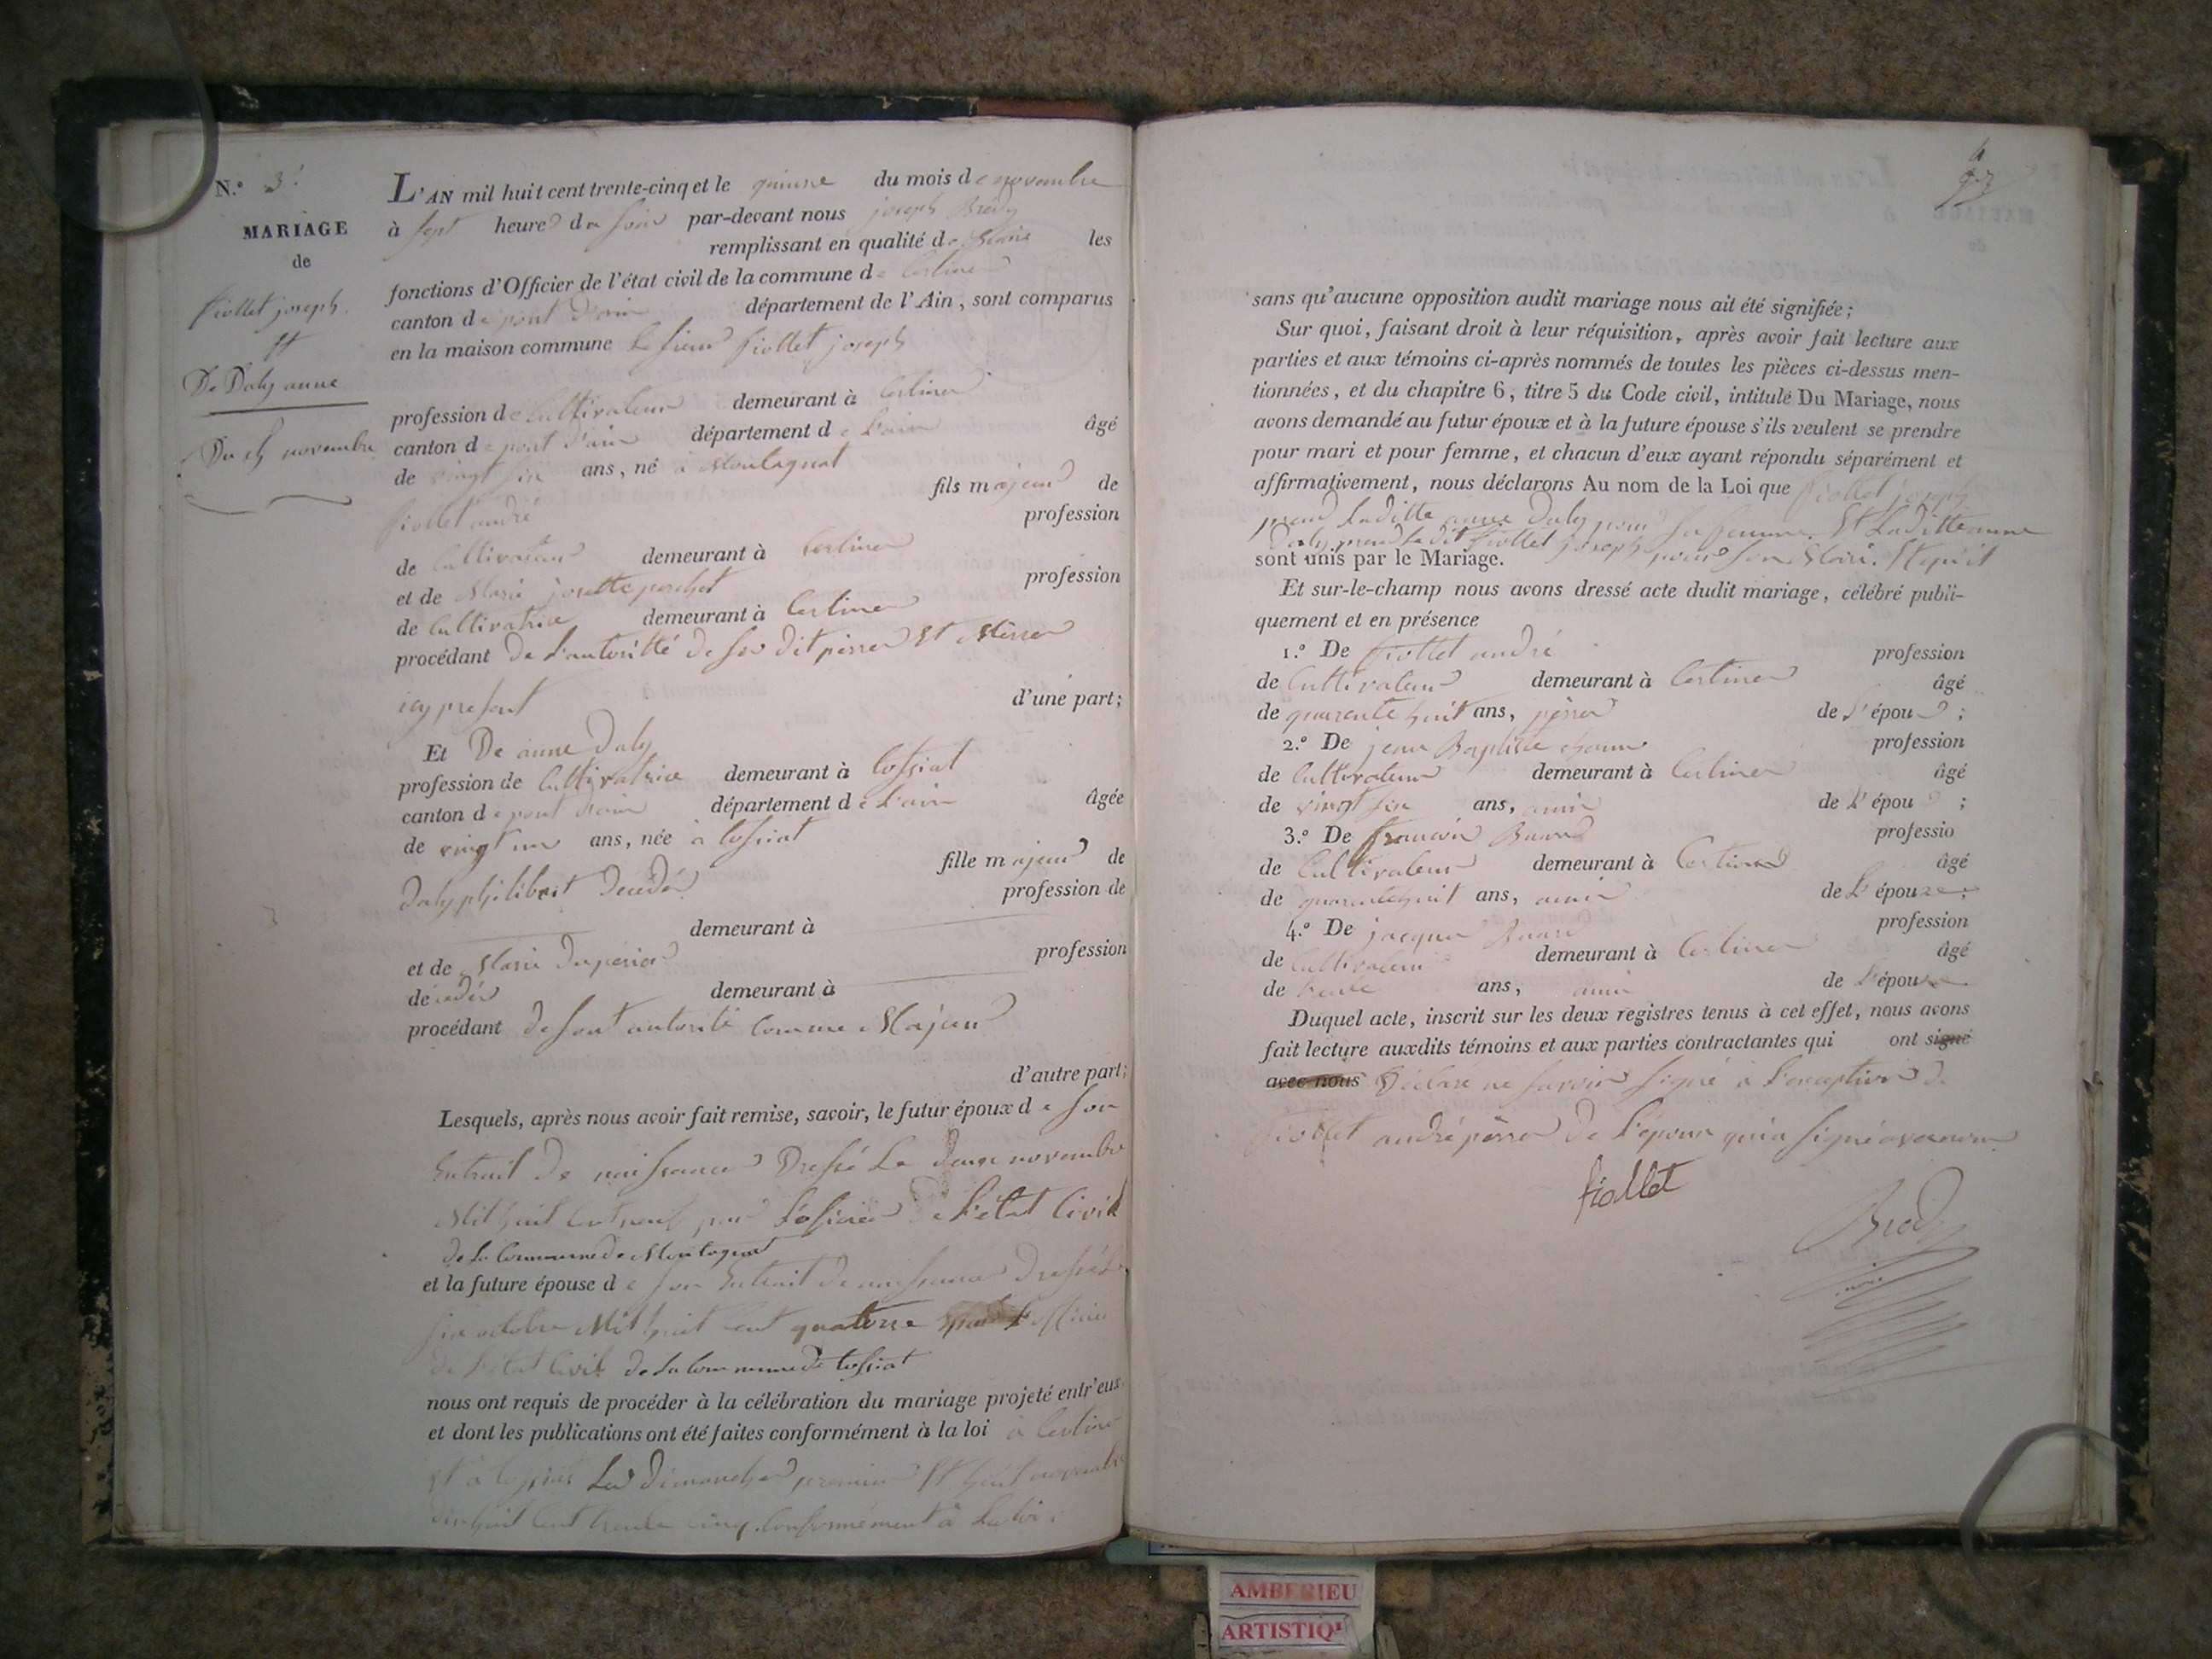 N.º 3.
MARIAGE
de
fiollet joseph
Et
De Daly anne
Du 15 novembre
L'AN mil huit cent trente-cinq et le quinze du mois de novembre
à sept heures du soir par-devant nous joseph Brédy
remplissant en qualité de Maire les
fonctions d'Officier de l'état civil de la commune de Certines
canton de pont d'ain département de l'Ain, sont comparus
en la maison commune Le sieur fiollet joseph
profession de Cultivateur demeurant à Certines
canton de pont d'ain département de L'ain âgé
de vingt six ans, né à Montagnat
fils majeur de
fiollet andré profession
de Cultivateur demeurant à Certines
et de Marie josette profession
de Cultivatrice demeurant à Certines
procédant De L'autorité de ses dit père Et Mère
icy présent d'une part;
Et De anne Daly
profession de Cultivatrice demeurant à tossiat
canton de pont d'ain département de L'ain âgée
de vingt un ans, née à tossiat
fille majeur de
Daly philibert Décédé profession de
demeurant à
et de Marie Duperier profession
décédée demeurant à
procédant de sont autorité Comme Majeur
d'autre part;
Lesquels, après nous avoir fait remise, savoir, le futur époux de son
Extrait De naissance Dressé Le Douze novembre
Mil huit Cent neuf par L'oficier de L'état Civil
de La Commune de Montagnat
et la future épouse de son Extrait De naissance Dressé Le
six octobre Mil huit Cent quatorze par L'officier
de L'état Civil de La Commune de tossiat
nous ont requis de procéder à la célébration du mariage projeté entr'eux
et dont les publications ont été faites conformément à la loi à Certines
Et à tossiat Les Dimanches premier Et huit novembre
dixhuit Cent trente cinq Conformément à La loi.
sans qu'aucune opposition audit mariage nous ait été signifiée;
Sur quoi, faisant droit à leur réquisition, après avoir fait lecture aux
parties et aux témoins ci-après nommés de toutes les pièces ci-dessus men-
tionnées, et du chapitre 6, titre 5 du Code civil, intitulé Du Mariage, nous
avons demandé au futur époux et à la future épouse s'ils veulent se prendre
pour mari et pour femme, et chacun d'eux ayant répondu séparément et
affirmativement, nous déclarons Au nom de la Loi que fiollet joseph
prend Laditte anne Daly pour sa femme. Et Laditte anne
Daly prend Ledit fiollet joseph pour son Mari. Et qu'il
sont unis par le Mariage.
Et sur-le-champ nous avons dressé acte dudit mariage, célébré publi-
quement et en présence
1.º De fiollet andré profession
de Cultivateur demeurant à Certines âgé
de quarente huit ans, père de L'époux;
2.º De jean Baptiste profession
de Cultivateur demeurant à Certines âgé
de vingt six ans, amis de L'époux;
3.º De francois professio
de Cultivateur demeurant à Certines âgé
de quarentehuit ans, amis de L'épouse;
4.º De jacques profession
de Cultivateur demeurant à Certines âgé
de trente ans, amis de L'épouse
Duquel acte, inscrit sur les deux registres tenus à cet effet, nous avons
fait lecture auxdits témoins et aux parties contractantes qui ont signé
avec nous Déclaré ne savoir signé à L'exception de
fiollet andré père De L'époux qui a signé avec nous
fiollet
Bredy
AMBERIEU
ARTISTIQ